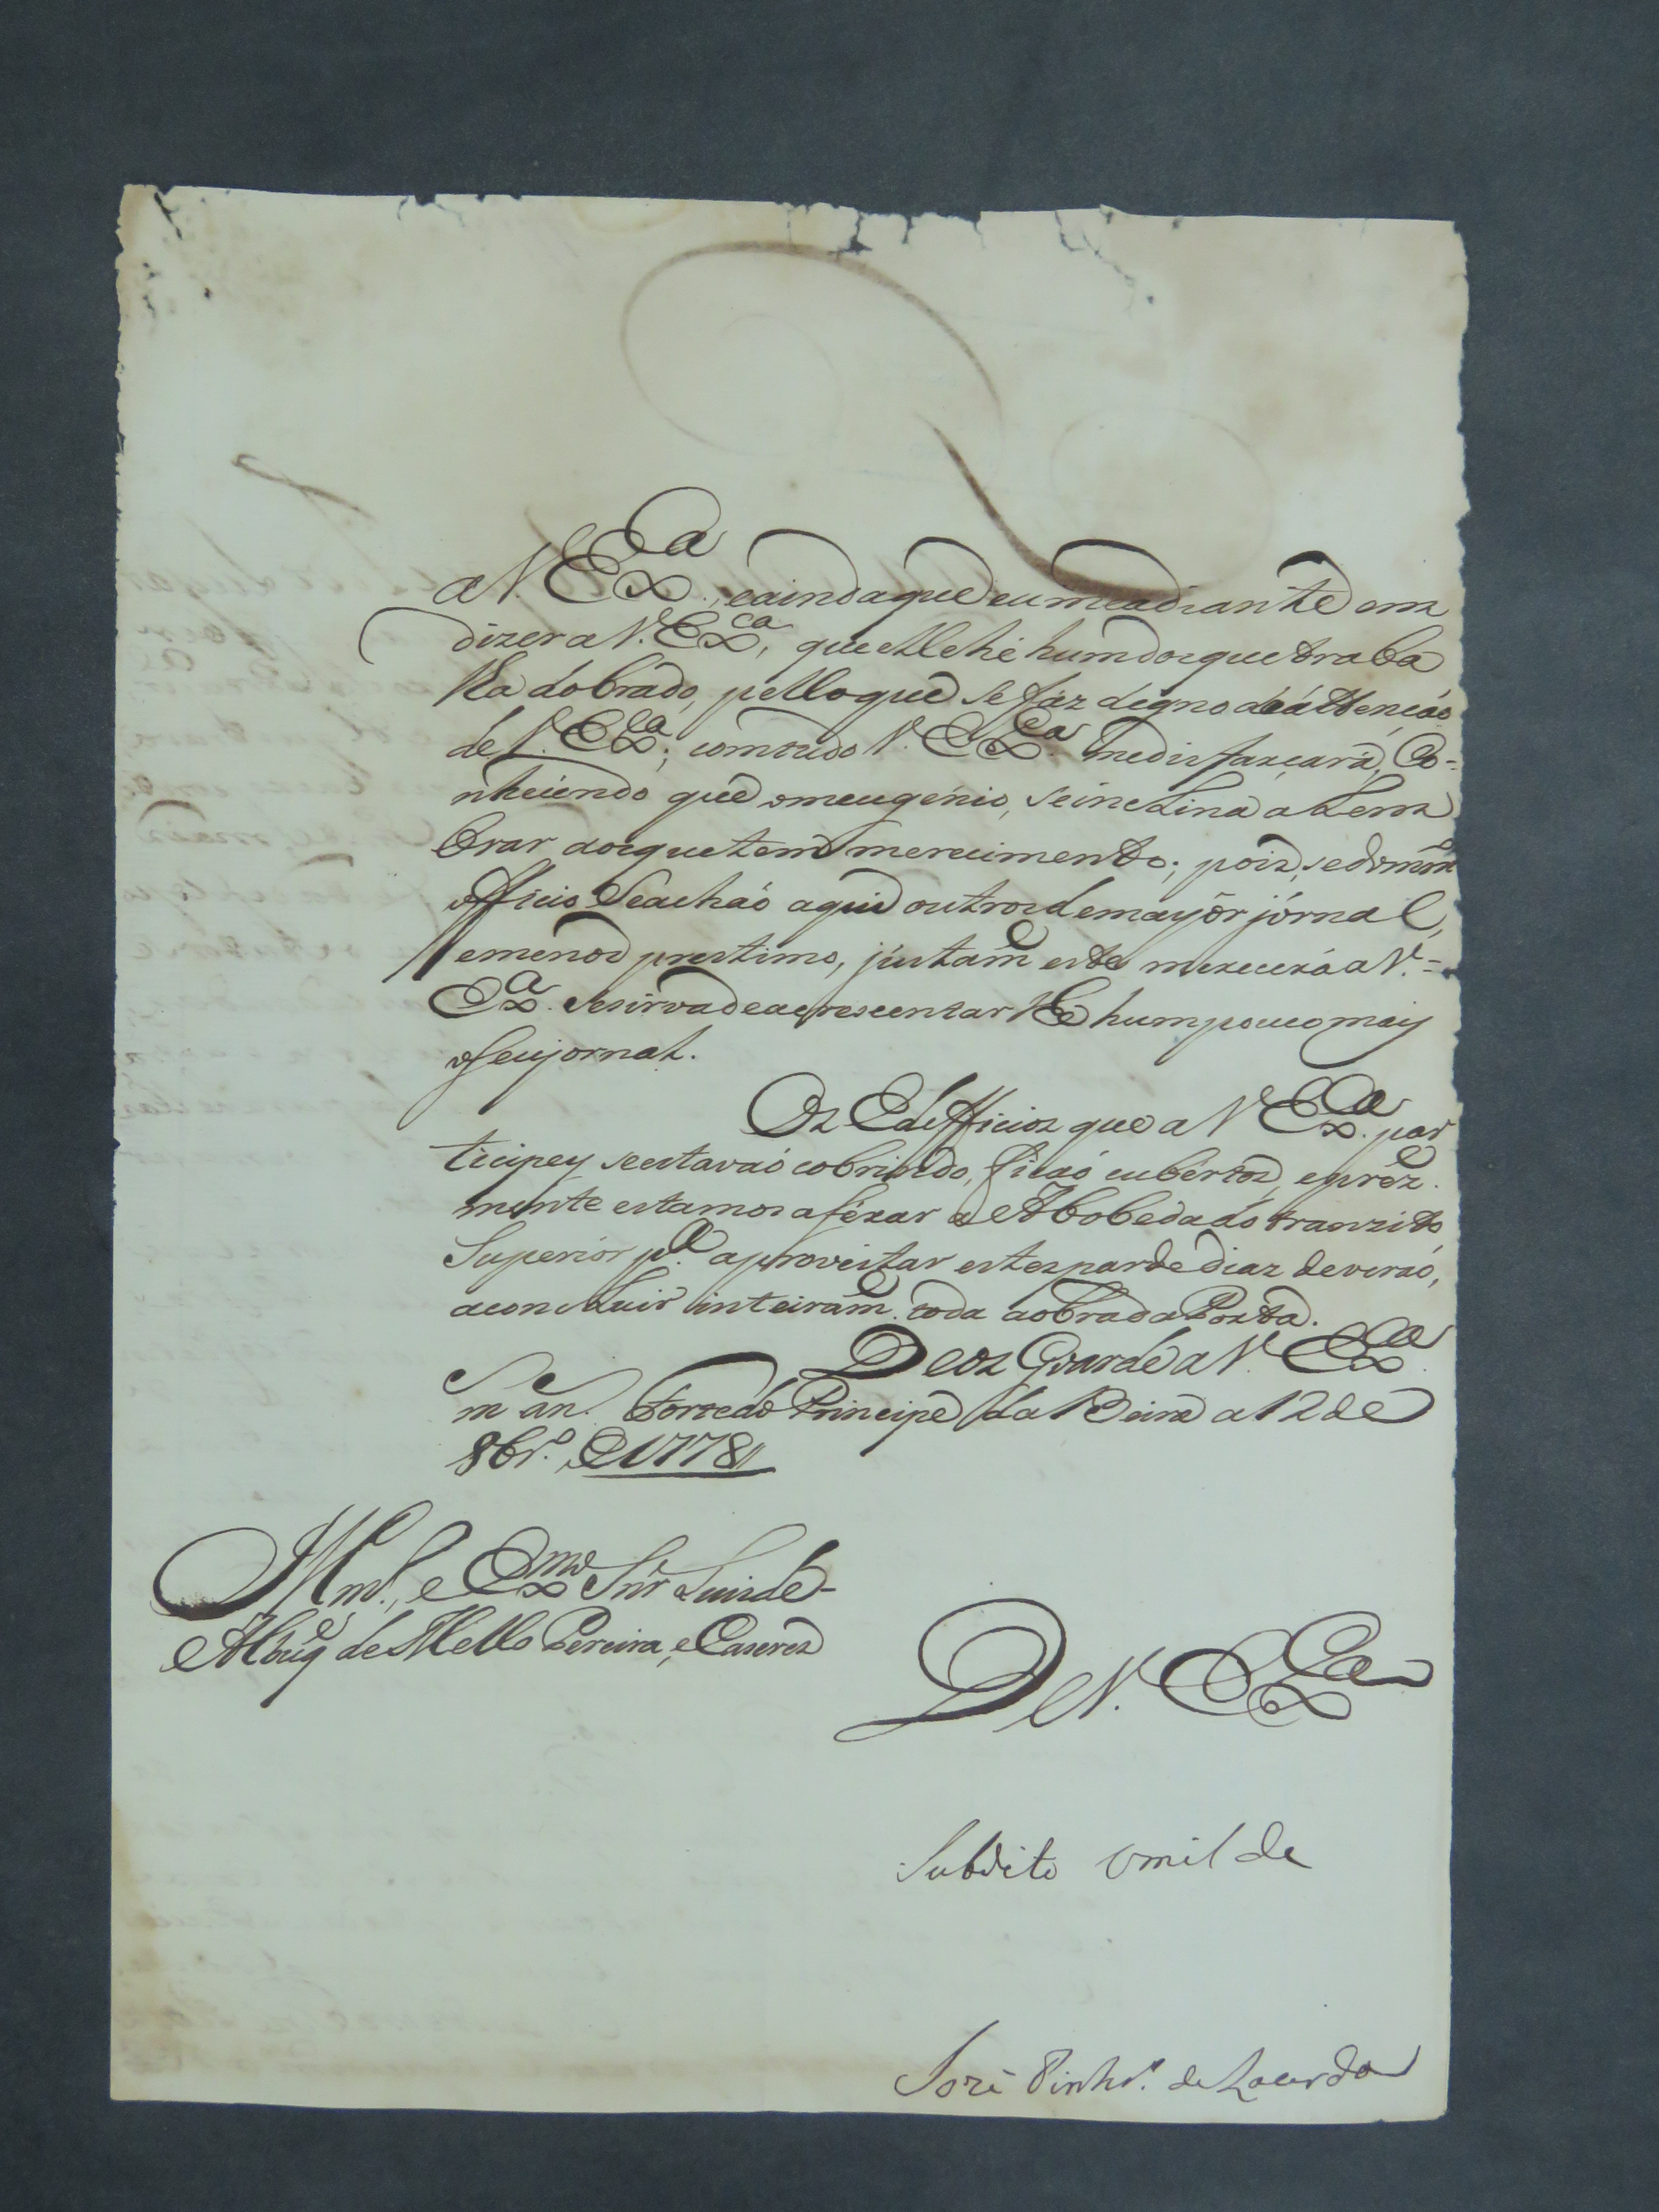 a V. Exª., e ainda que eu me adiante em
dizer a V. Exca, que elle hé hum dos que traba
lha dobrado, pello que se fáz digno da attenção
de V. Exca; com tudo V. Exca. me disfarçará, Co-
nheciendo que o meu génio, se inclina a Lem
brar dos que tem merecimento; pois, se do mesmo
officio Se achaõ aqui outros de mayór jórnal,
e menos prestimo, justam.e este merecerá a V.-
Exa. se sirva de acrescentar lhe hum pouco mais
o seu jornal.
Os Edifficios que a V Exca. par
ticipey se estavaõ cobrindo, ficaõ cubértos, e prêz.e
mente estamos a féxar a Abobeda do tranzito
Superiór p.a aproveitar estes par de diaz de veraõ,
a concluir inteiram.e toda a obra da Porta.
Deos Guarde a V. Exca.
m. an. Forte do Principe da Beira a 12 de
8br.o de 1778//
Illmo., e Exmo Snr Luis de-
Albuq.e de Mello Pereira, e Caseres
De V. Exca
Subdito Umilde
José Pinhr.o de Lacerda